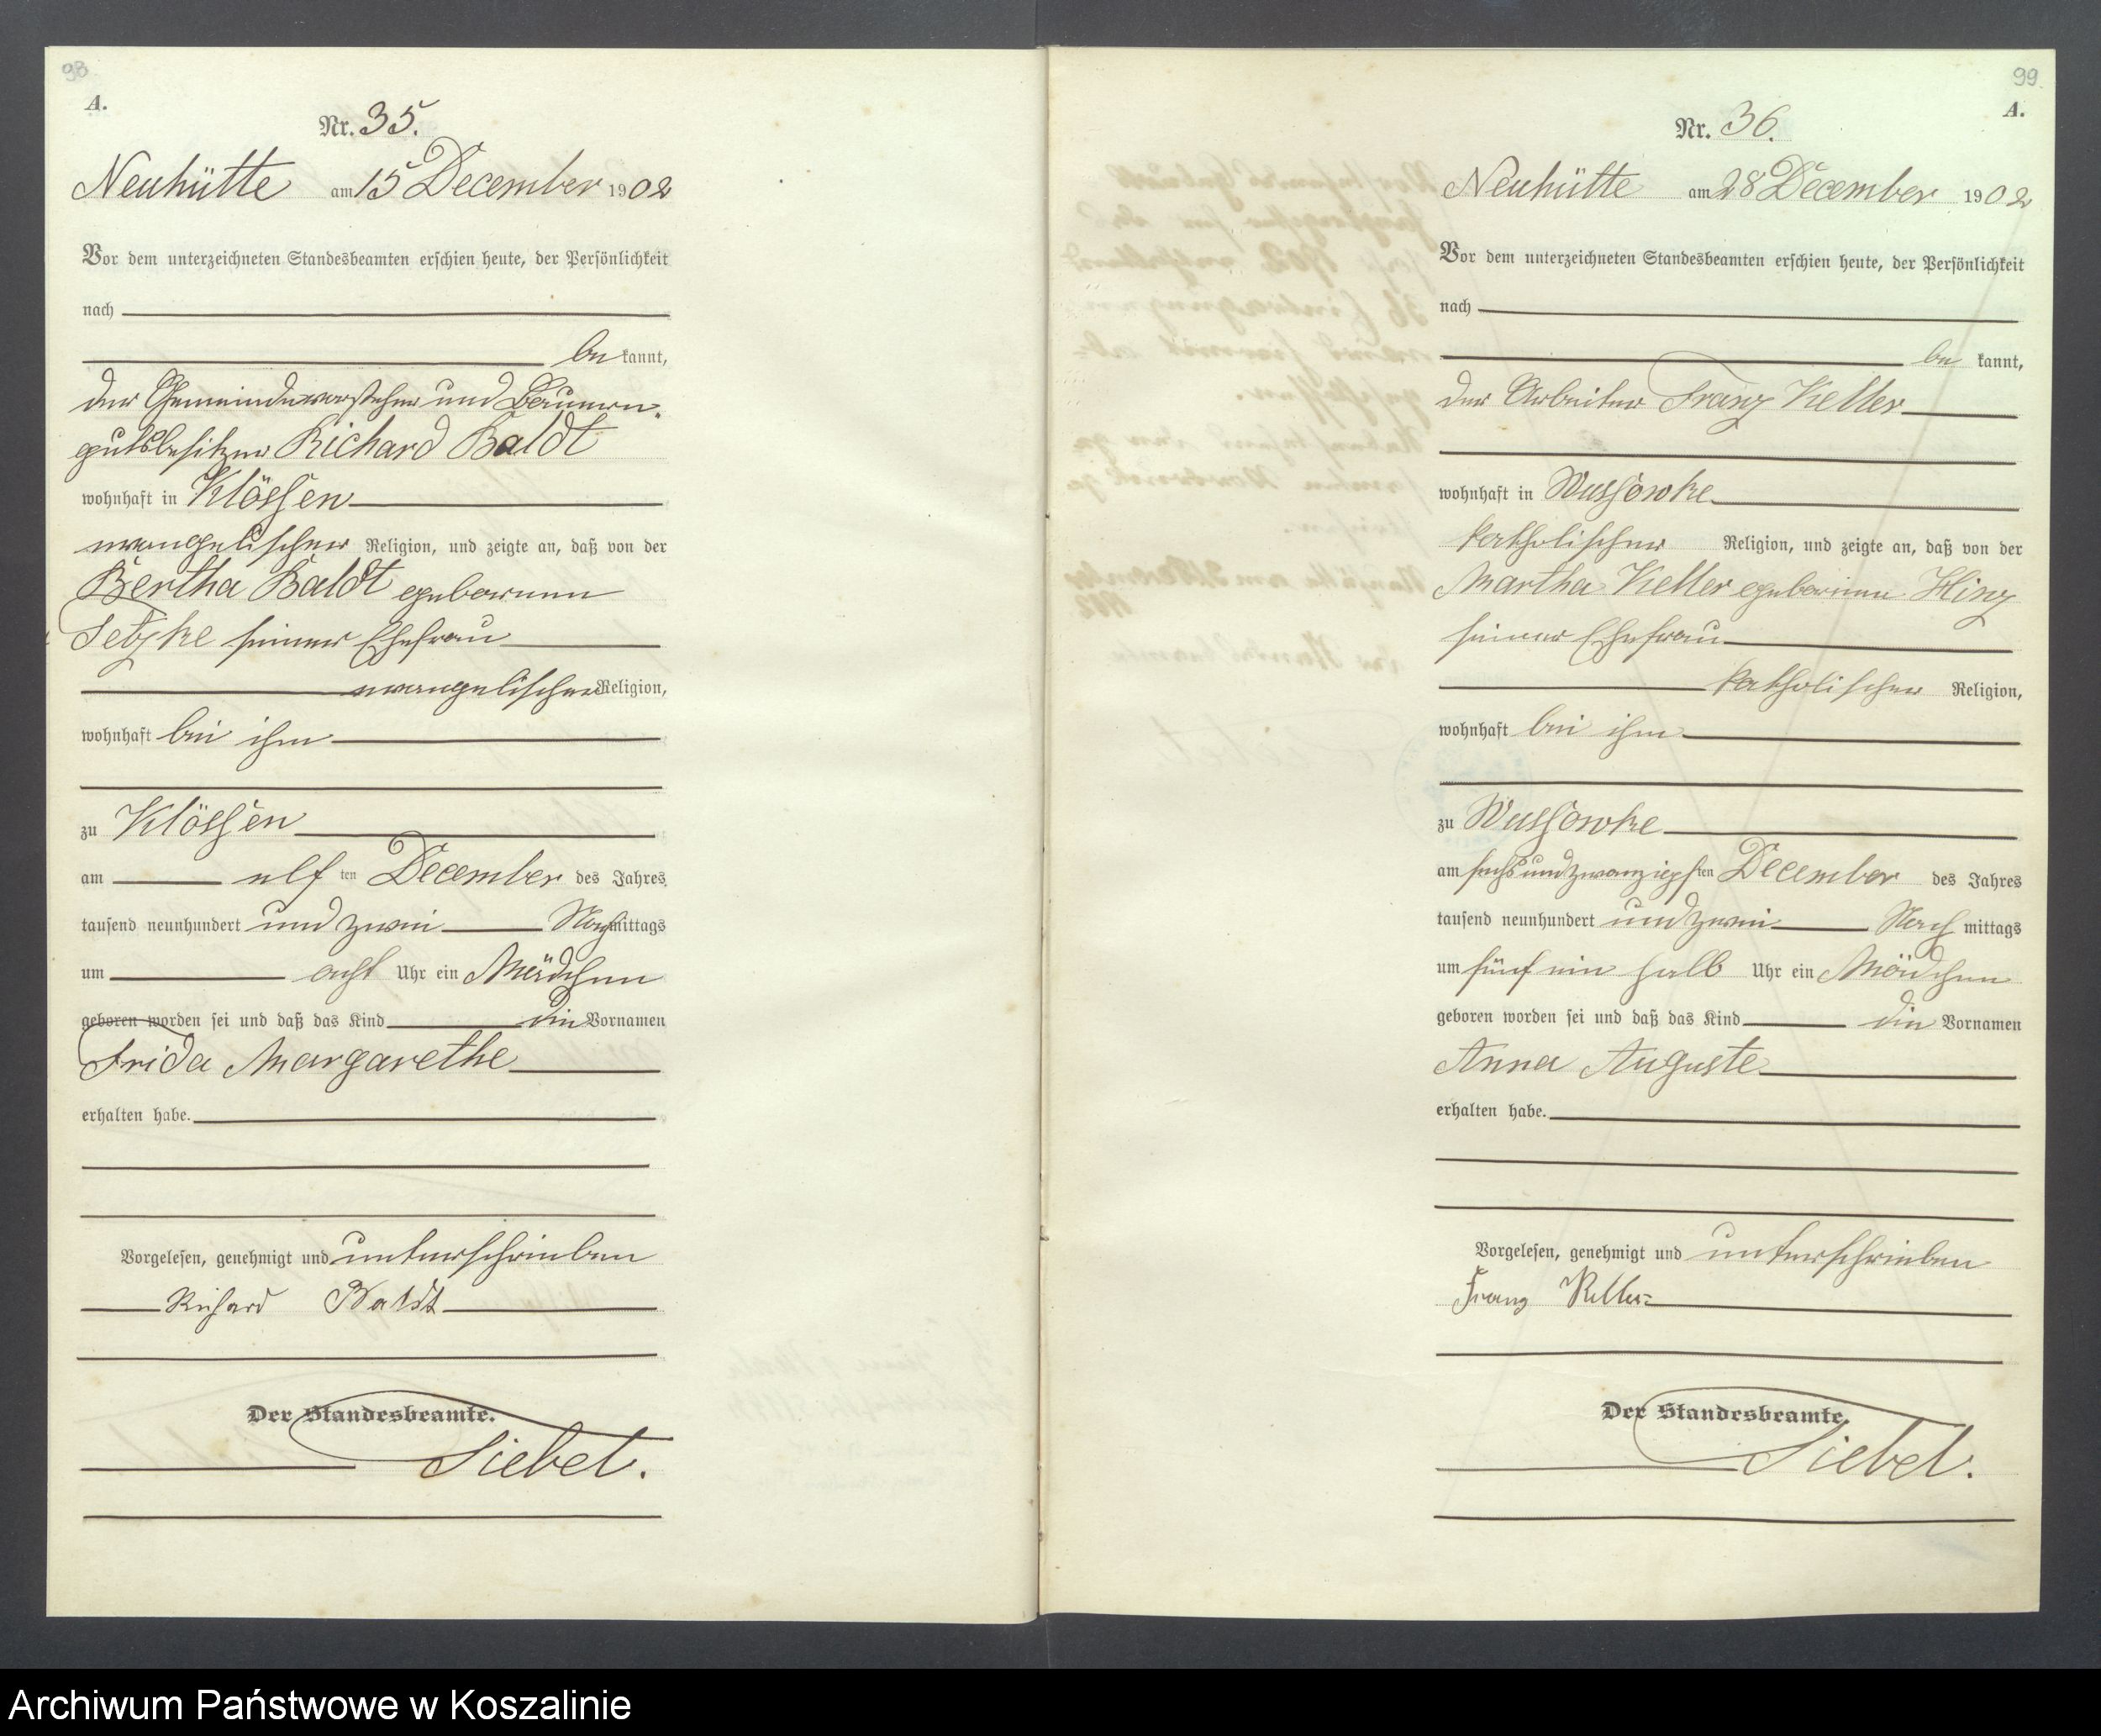 98
A.
Nr. 35.
Neuhütte am 15 December 1902
Vor dem unterzeichneten Standesbeamten erschien heute, der Persönlichkeit
nach
be kannt,
der Gemeindevorsteher und Bauern-
gutsbesitzer Richard Baldt
wohnhaft in Klössen
evangelischer Religion, und zeigte an, daß von der
Bertha Baldt geborenen
Tetzke seiner Ehefrau
evangelischer Religion,
wohnhaft bei ihm
zu Klössen
am elf ten December des Jahres
tausend neunhundert und zwei Nachmittags
um acht Uhr ein Mädchen
geboren worden sei und daß das Kind die Vornamen
Frida Margarethe
erhalten habe.
Vorgelesen, genehmigt und unterschrieben
Richard Baldt
Der Standesbeamte.
Siebel.
99
A.
Nr. 36.
Neuhütte am 28 December 1902
Vor dem unterzeichneten Standesbeamten erschien heute, der Persönlichkeit
nach
be kannt,
der Arbeiter Franz Keller
wohnhaft in Wussowke
katholischer Religion, und zeigte an, daß von der
Martha Keller geborenen Hinz
seiner Ehefrau
katholischer Religion,
wohnhaft bei ihm
zu Wussowke
am sechsundzwanzigsten December des Jahres
tausend neunhundert und zwei Nach mittags
um fünf ein halb Uhr ein Mädchen
geboren worden sei und daß das Kind die Vornamen
Anna Auguste
erhalten habe.
Vorgelesen, genehmigt und unterschrieben
Franz Keller
Der Standesbeamte.
Siebel.
Archiwum Państwowe w Koszalinie